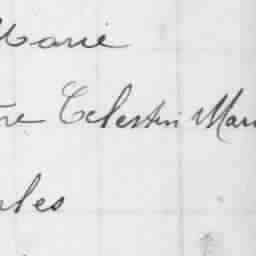 Marie
re Celestin Mari
les